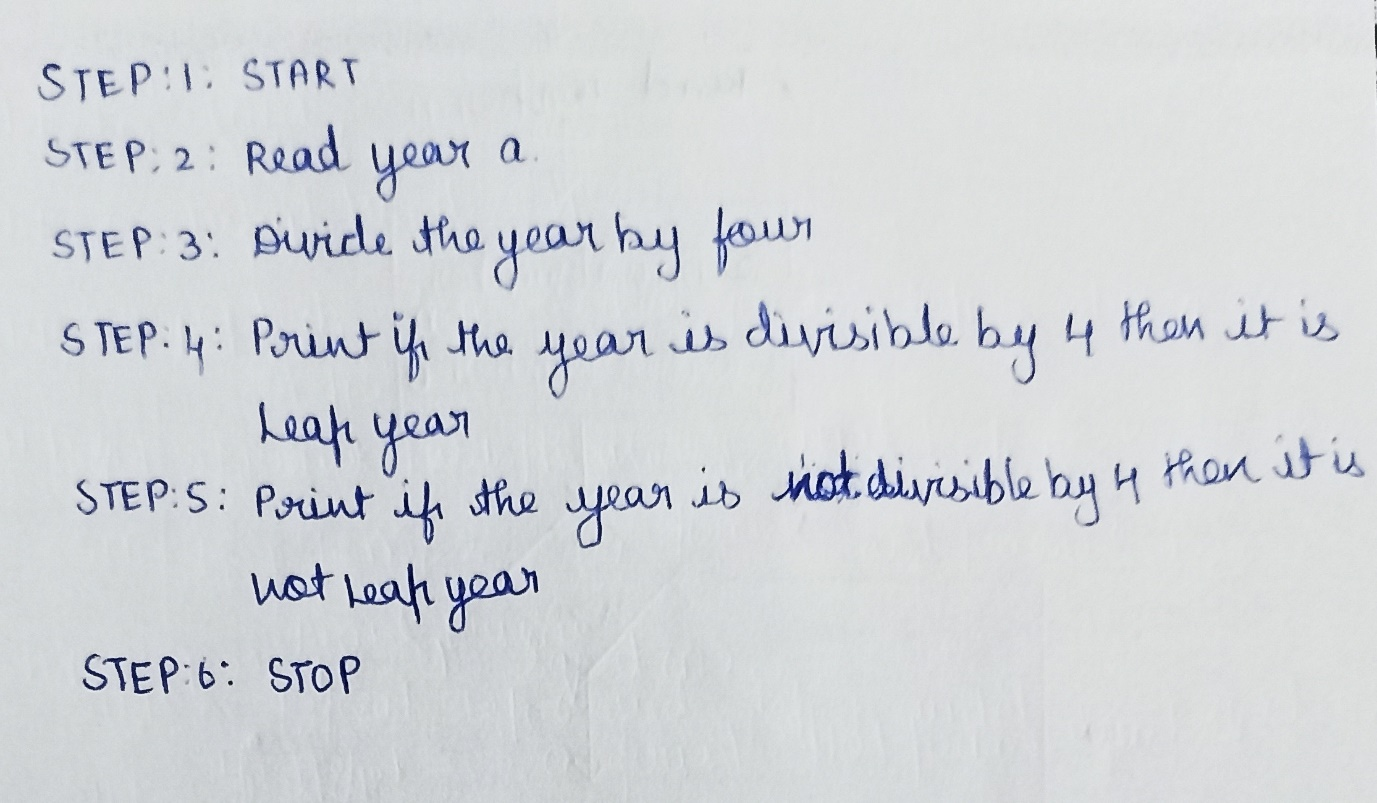 STEP:1: START
STEP:2: Read year a.
STEP:3: Divide the year by four
STEP:4: Print if the year is divisible by 4 then it is
Leap year
STEP:5: Print if the year is not divisible by 4 then it is
not Leap year
STEP:6: STOP